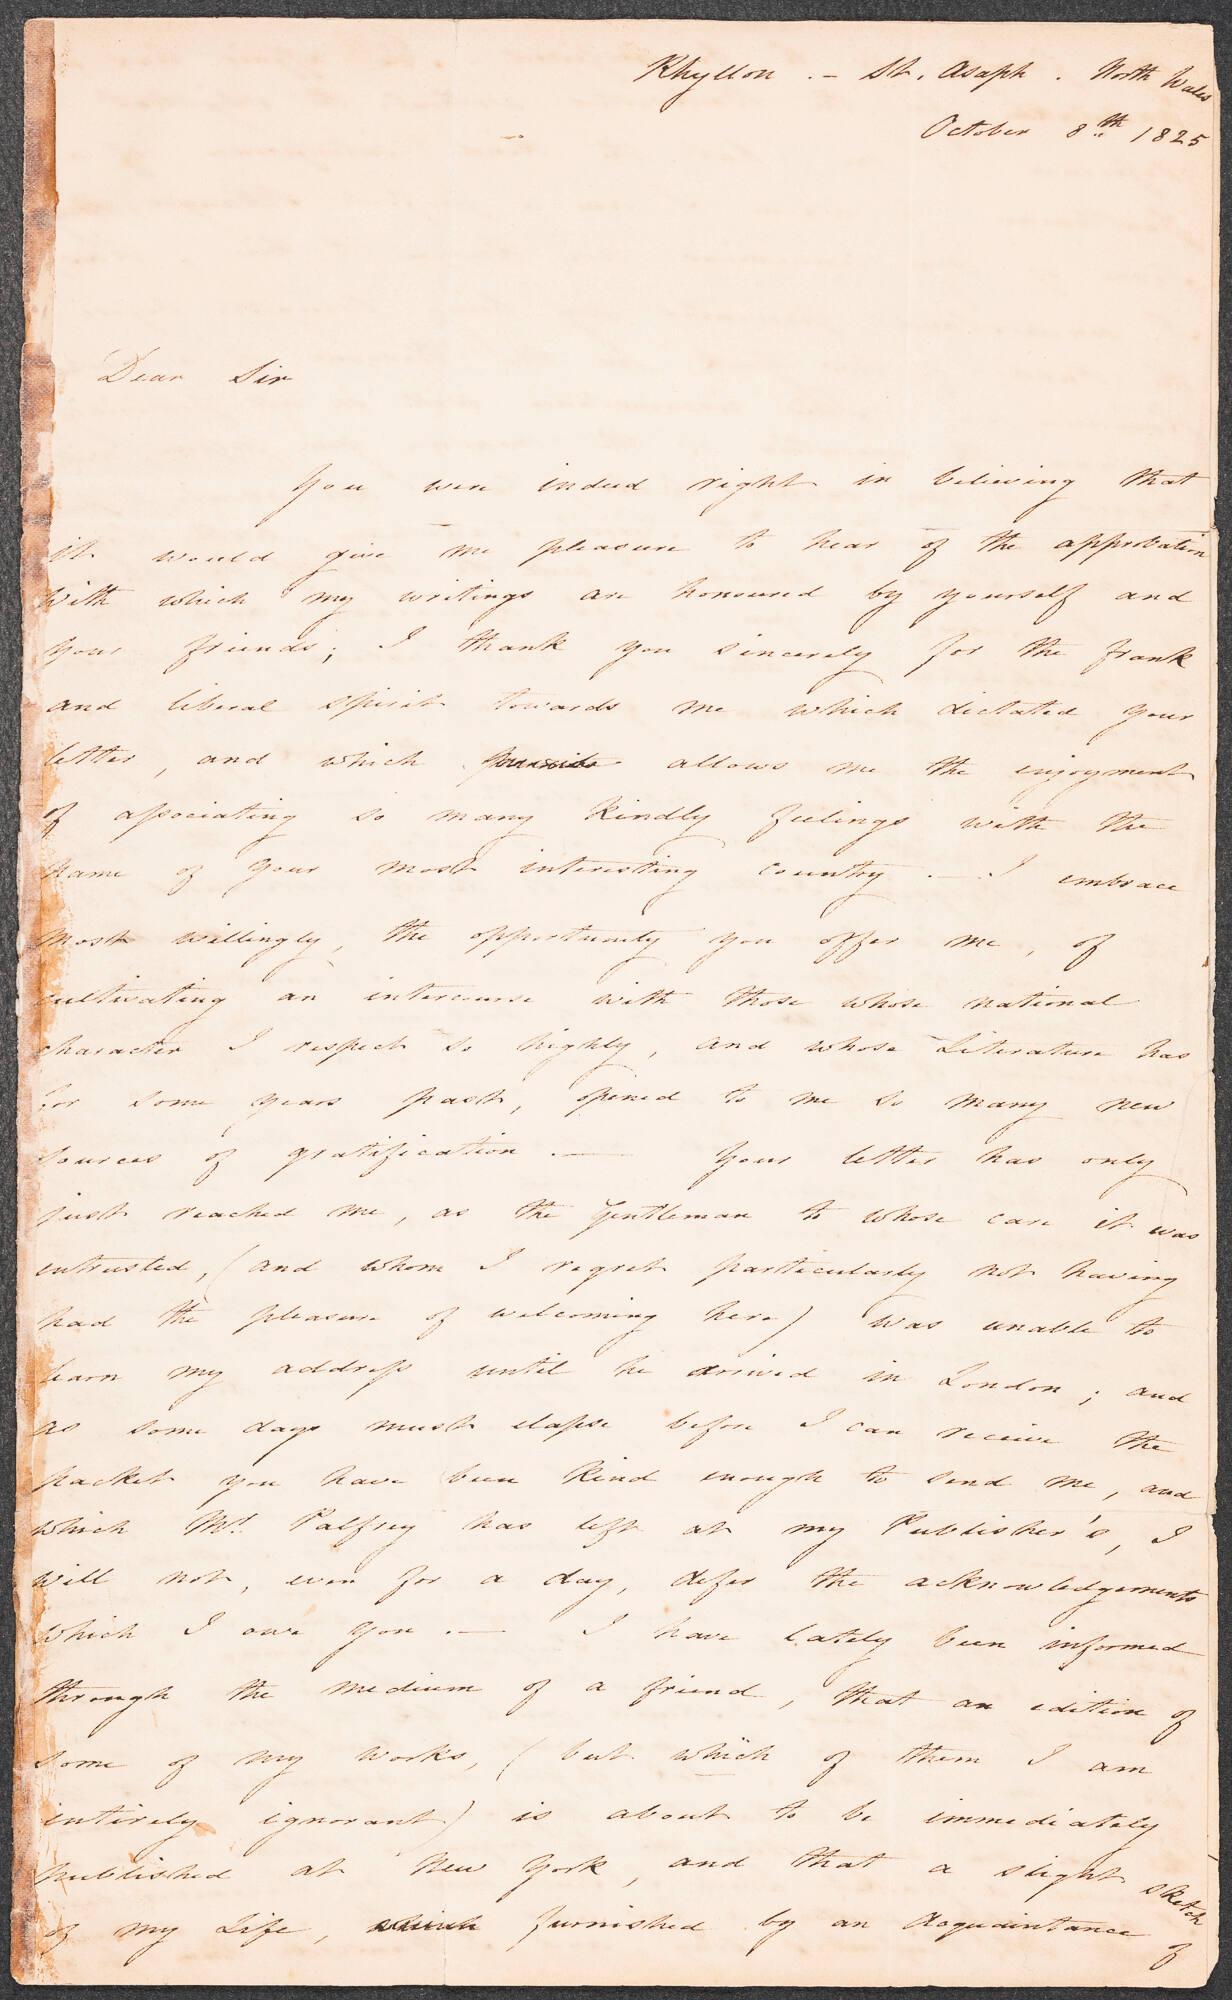 Rhyllon .- St. Asaph. North Wales
October 8th 1825
Dear Sir
You were indeed right in believing that
it would give me pleasure to hear of the approbation
with which my writings are honoured by yourself and
your friends; I thank you sincerely for the frank
and liberal spirit towards me which dictated your
letter, and which allows me the enjoyment
of associating so many kindly feelings with the
name of your most interesting country.— I embrace
most willingly, the opportunity you offer me, of
cultivating an intercourse with those whose national
character I respect so highly, and whose Literature has
for some years past, opened to me so many new
sources of gratification.— Your letter has only
just reached me, as the Gentleman to whose care it was
entrusted, (and whom I regret particularly not having
had the pleasure of welcoming here) was unable to
learn my address until he arrived in London; and
as some days must elapse before I can receive the
packet you have been kind enough to send me, and
which Mr. Palfrey has left at my Publisher's, I
will not, even for a day, defer the acknowledgements
which I owe you.— I have lately been informed
through the medium of a friend, that an edition of
some of my works, (but which of them I am
entirely ignorant) is about to be immediately
published at New York, and that a slight sketch
of my Life, which furnished by an Acquaintance of